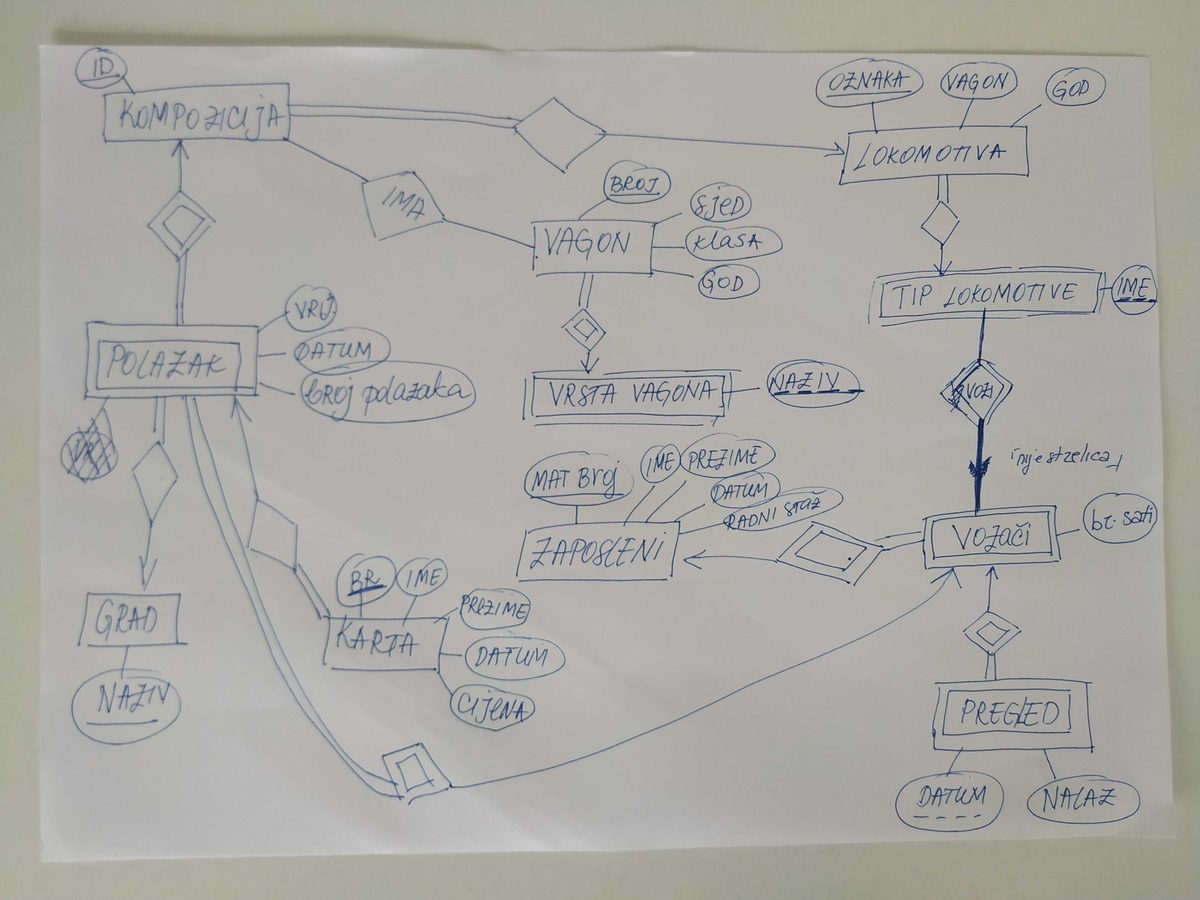 ID
KOMPOZICIJA
OZNAKA
VAGON
GOD
LOKOMOTIVA
IMA
BROJ
SJED
KLASA
GOD
VAGON
TIP LOKOMOTIVE
IME
VRIJ
DATUM
BROJ polazaka
POLAZAK
VRSTA VAGONA
NAZIV
VOZI
MAT Broj
IME
PREZIME
DATUM
RADNI STAŽ
ZAPOSLENI
VOZAČI
br. sati
GRAD
NAZIV
BR
IME
PREZIME
DATUM
CIJENA
KARTA
PREGLED
DATUM
NALAZ